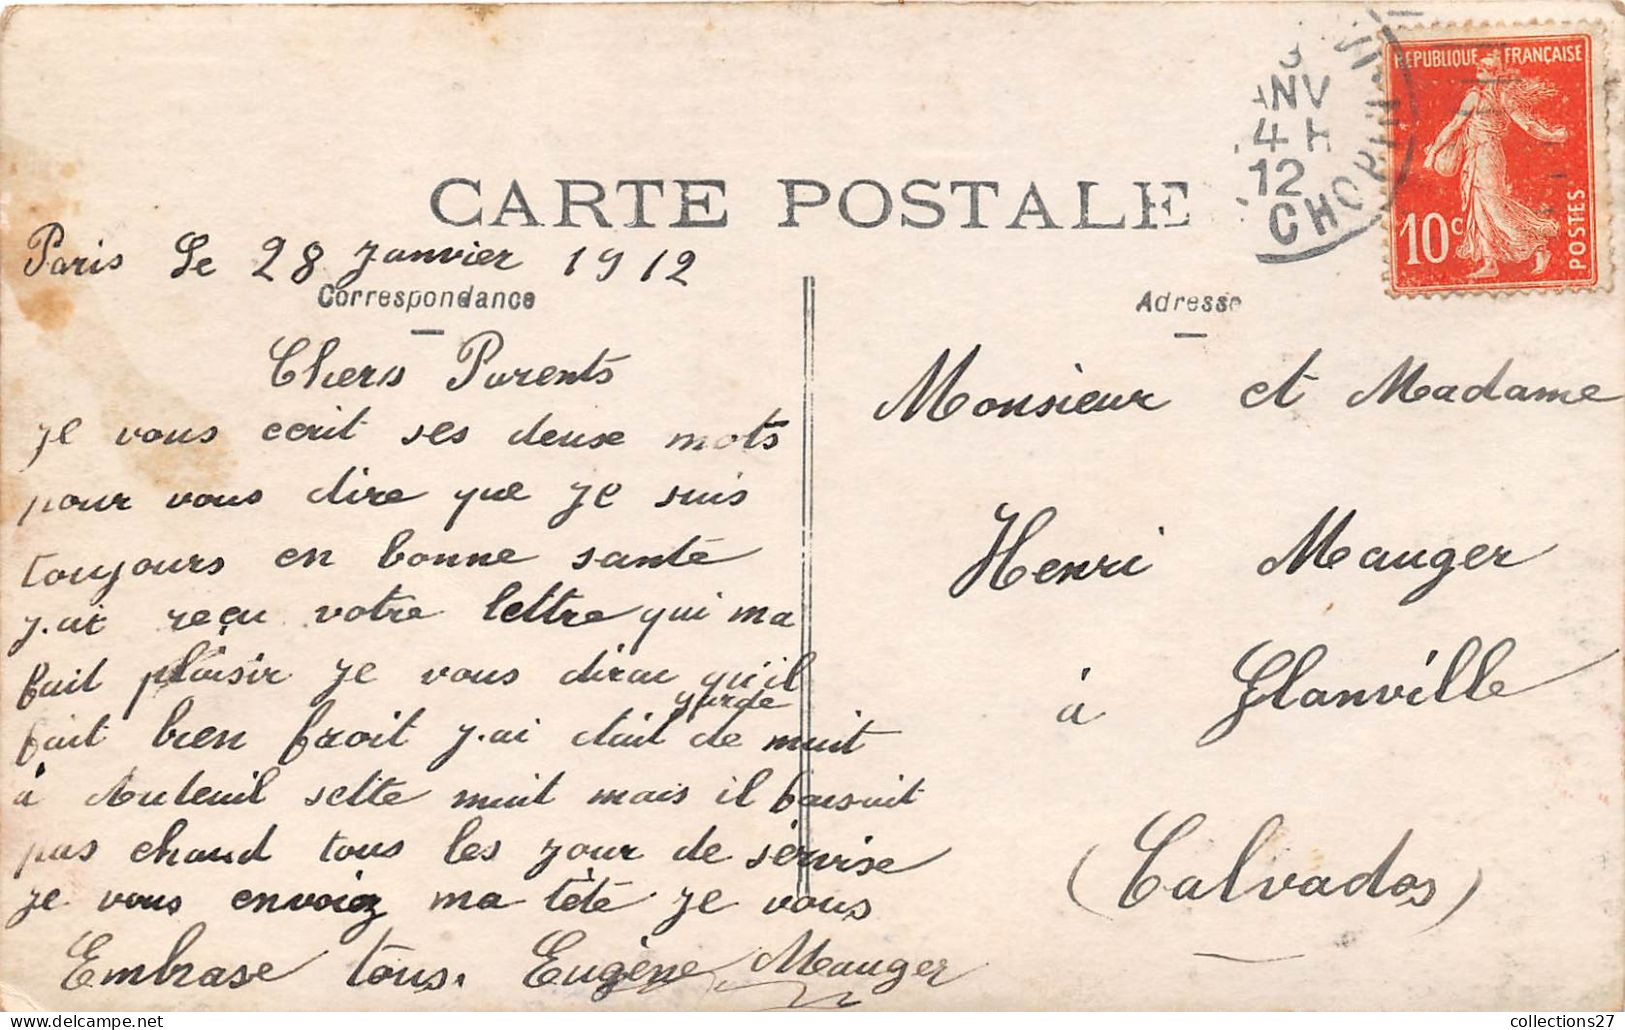 CARTE POSTALE
Paris le 28 Janvier 1912
Correspondance
Chers Parents
Je vous ecrit ses deuse mots
pour vous dire que Je suis
toujours en bonne santé
J.ai reçu votre lettre qui ma
fait plaisir Je vous dirai qu'il
fait bien froit J.ai était de garde nuit
à Auteuil sette nuit mais il faisait
pas chaud tous les jour de sérvise
Je vous envoiez ma tête Je vous
Embrase tous. Eugène Mauger
Adresse
Monsieur et Madame
Henri Mauger
à Glanville
(Calvados)
REPUBLIQUE FRANÇAISE
10c
POSTES
ANV
4 H
12
CHOPIN
collections27